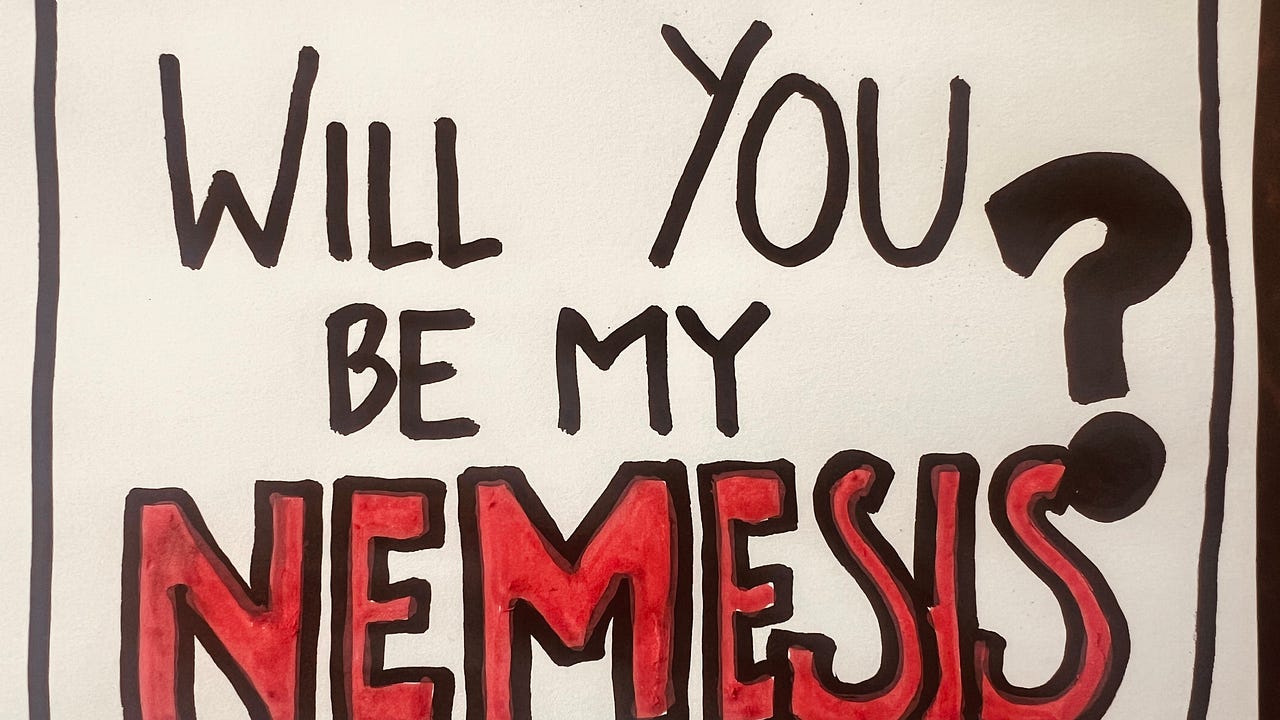 WILL YOU
BE MY ?
NEMESIS